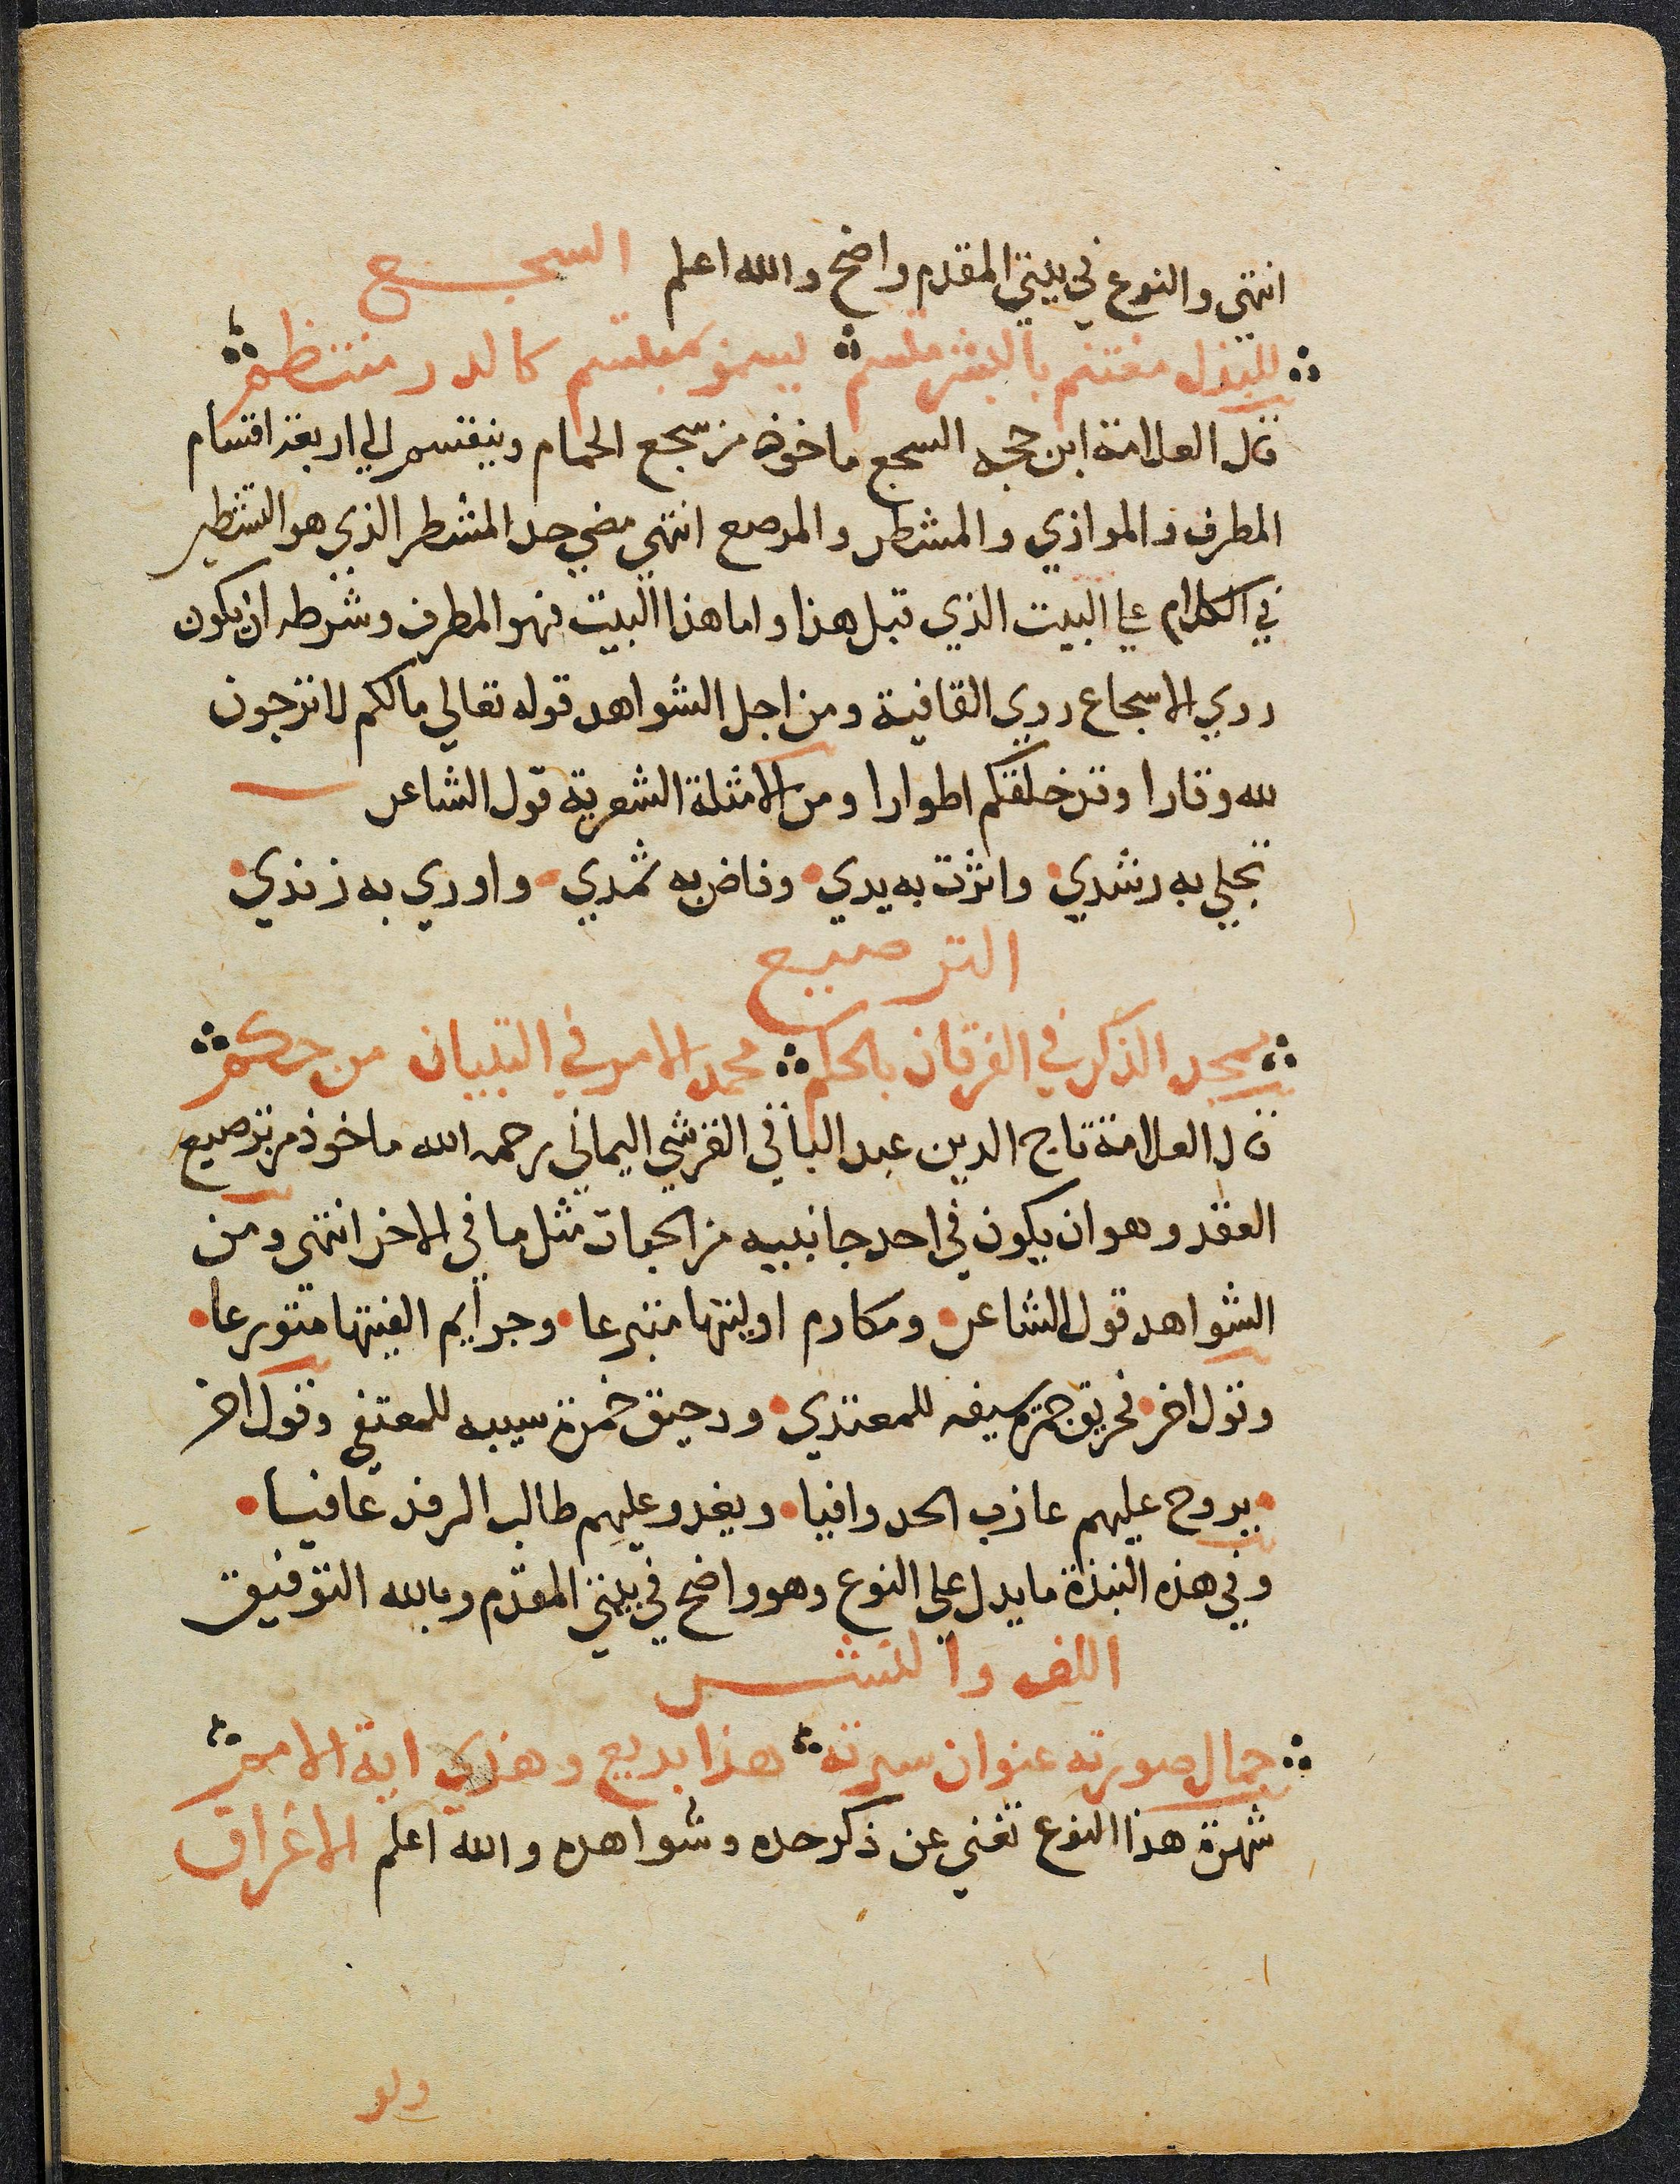 انتهى والنوع في بيتي المقدم واضح والله اعلم السجع
للبذل مغتنم بالبشر ملتئم يسمو بمبتسم كالدر منتظم
قال العلامة ابن حجه السجع ماخوذ من سجع الحمام وينقسم الي اربعة اقسام
المطرف والموازي والمشطر والمرصع انتهى مضي حد المشطر الذي هو التشطير
في الكلام علي البيت الذي قبل هذا واما هذا البيت فهو المطرف وشرطه ان يكون
روي الاسجاع روي القافية ومن اجل الشواهد قوله تعالي مالكم لا ترجون
لله وقارا وقد خلقكم اطوارا ومن الامثلة الشعرية قول الشاعر
تجلي به رشدي واثرت به يدي وفاض به ثمدي واوري به زندي
الترصيع
ممجد الذكر في الفرقان بالحكم محمد الامر في التبيان من حكم
قال العلامة تاج الدين عبد الباقي القرشي اليماني رحمه الله ماخوذ من ترصيع
العقد وهو ان يكون في احد جانبيه من الحبات مثل ما في الاخر انتهى ومن
الشواهد قول الشاعر ومكارم اوليتها متبرعا وجرايم الغيتها متورعا
وقول اخر فحريق جمرة سيفه للمعتدي ورحيق خمرة سيبه للمعتفي وقول اخر
يروح عليهم عازب الحد وافيا ويغدو عليهم طالب الرفد عافيا
وفي هذه النبذة ما يدل علي النوع وهو واضح في بيتي المقدم وبالله التوفيق
اللف والنشر
جمال صورته عنوان سيرته هذا بديع وهذي اية الامم
شهرة هذا النوع تغني عن ذكر حده وشواهده والله اعلم الاغراق
ولو